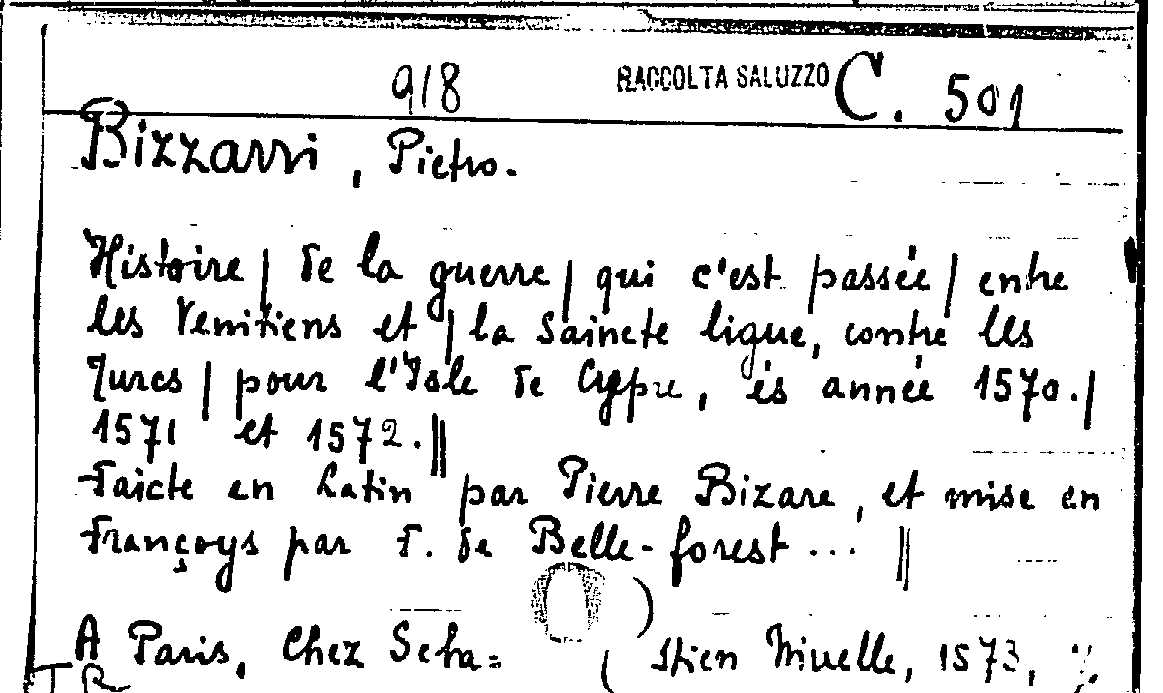 918 RACCOLTA SALUZZO C. 501
Bizzarri, Pietro.
Histoire | de la guerre | qui c'est passée | entre
les Venitiens et | la Saincte ligue, contre les
Turcs | pour l'Isle de Cypre, és année 1570. |
1571 et 1572. ||
Faicte en Latin par Pierre Bizare, et mise en
Françoys par F. de Belle-forest ... ||
A Paris, Chez Seba= ( stien Nivelle, 1573, %